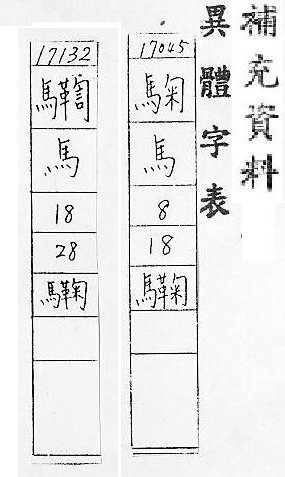 補充資料
異體字表
17045
馬
8
18
驧
17132
馬
18
28
驧